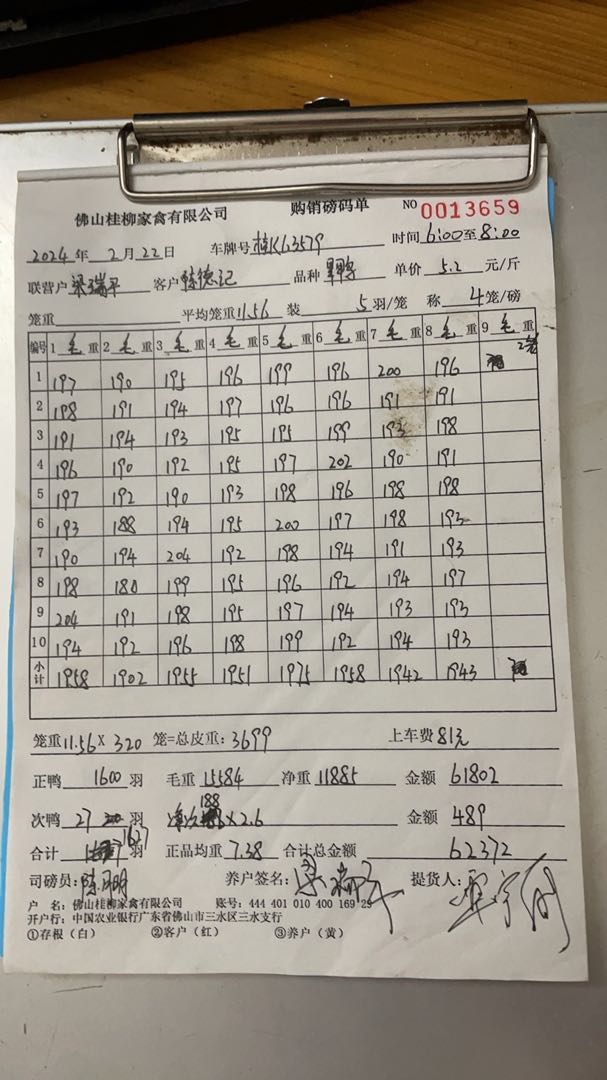 佛山桂柳家禽有限公司 购销磅码单 NO 0013659
2024年 2月 22日 车牌号 桂K63579 时间 6:00至8:00
联营户 梁瑞平 客户 德记 品种 单价 5.2 元/斤
笼重 平均笼重 11.56 装 5 羽/笼 称 4 笼/磅
编号 1 毛重 2 毛重 3 毛重 4 毛重 5 毛重 6 毛重 7 毛重 8 毛重 9 毛重
1 197 190 195 196 199 196 200 196
2 198 191 194 197 196 196 191 191
3 191 194 193 195 195 199 193 198
4 196 190 192 195 197 202 190 191
5 197 192 190 193 198 196 198 198
6 193 188 194 195 200 197 198 193
7 190 194 204 192 198 194 191 193
8 198 180 199 195 196 192 194 197
9 204 191 198 195 197 194 193 193
10 194 192 196 198 199 192 194 193
小计 1958 1902 1955 1951 1975 1958 1942 1943
笼重 11.56 X 320 笼=总皮重: 3699 上车费 81元
正鸭 1600 羽 毛重 15584 净重 11885 金额 61802
次鸭 27 羽 188 X 2.6 金额 489
合计 1627 羽 正品均重 7.38 合计总金额 62372
司磅员: 养户签名: 梁瑞平 提货人:
户 名: 佛山桂柳家禽有限公司 账号: 444 401 010 400 169 25
开户行: 中国农业银行广东省佛山市三水区三水支行
①存根（白） ②客户（红） ③养户（黄）